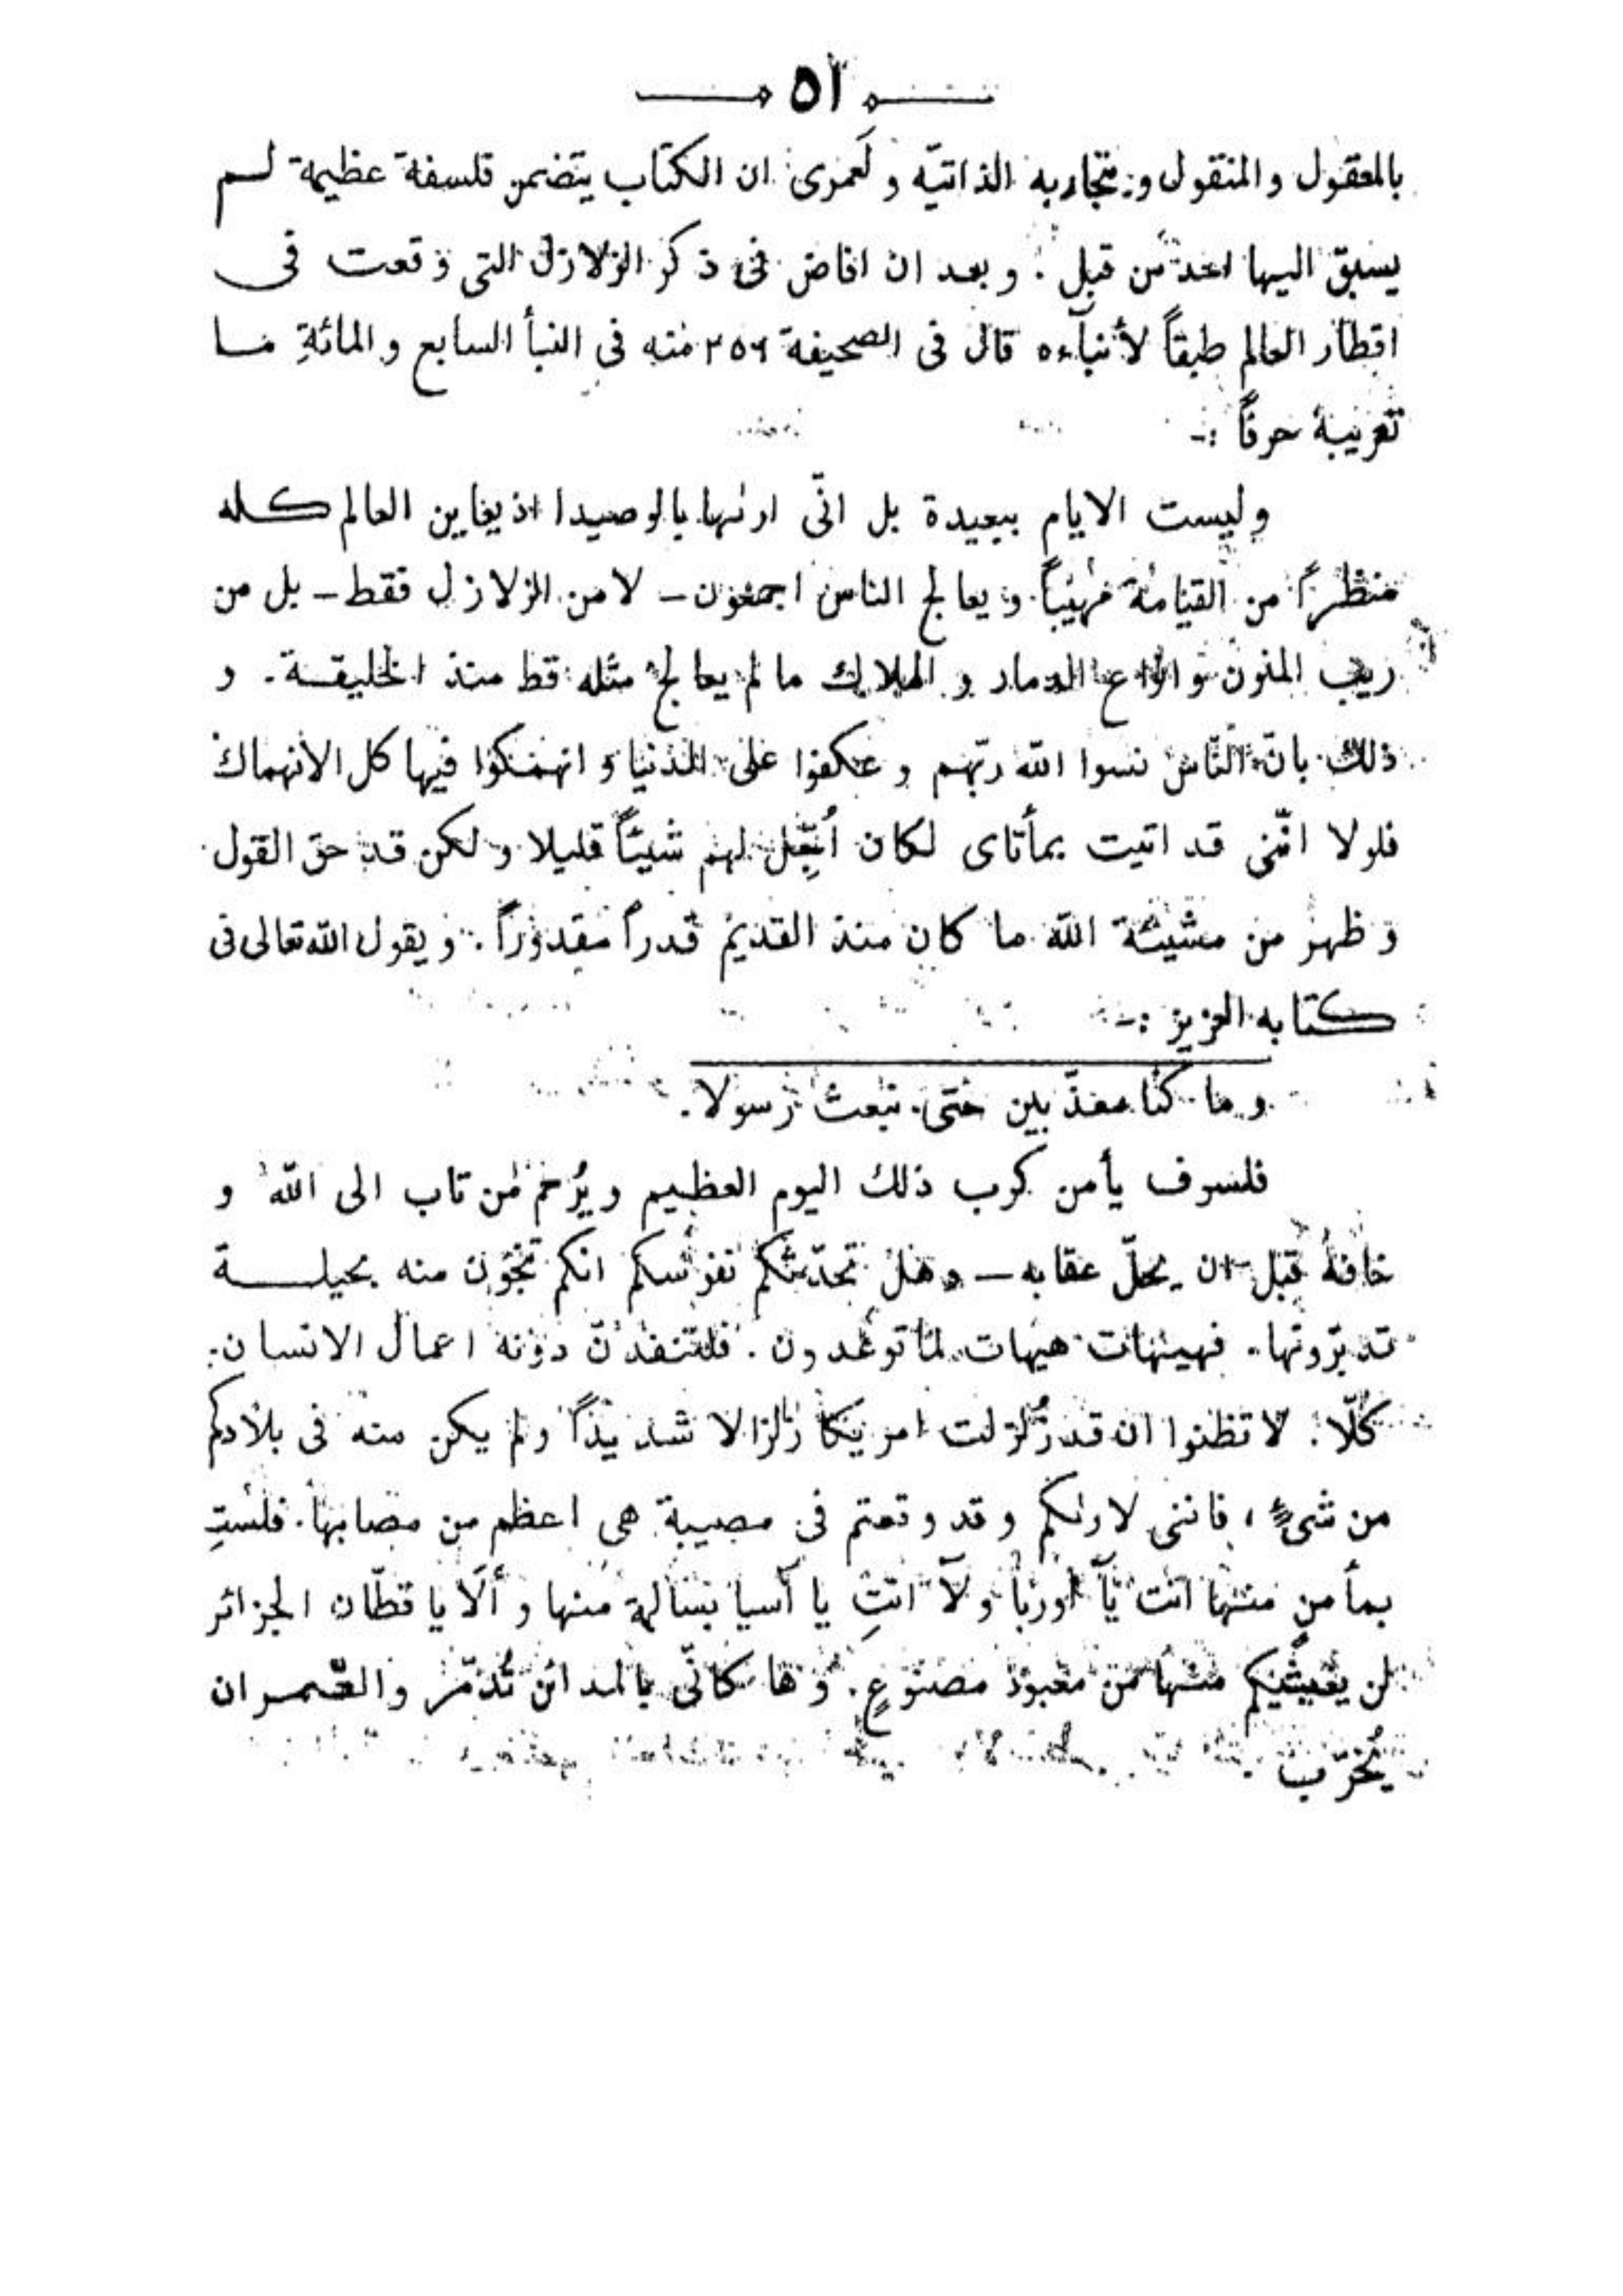 ٥١
بالمعقول والمنقول و بتجاربه الذاتيّه و لَعمرى ان الكتاب يتضمن فلسفة عظيمة لــم
يسبق اليها احد من قبل . و بعد ان افاض فى ذكر الزلازل التى وقعت فى
اقطار العالم طبقاً لأنبآءه قال فى الصحيفة ٢٥٦ منه فى النبأ السابع و المائةِ مـا
تعريبة حرفاً :-
وليست الايام ببعيدة بل انّى ارٮٰها بالوصيد اذ يعاين العالم كـله
منظراً من القيامة مهيباً و يعالج الناس اجمعون – لا من الزلازل فقط – بل من
ريب المنون و انواع الدمار و الهلاك ما لم يعالج مثله قط منذ الخليقـة . و
ذلك بانّ النّاس نسوا الله ربّهم و عكفوا على الدنيا و انهمكوا فيها كل الانهماك
فلولا انّنى قد اتيت بمأتاى لكان أُجِّل لهم شيئاً قليلا و لكن قد حق القول
و ظهر من مشيئة الله ما كان منذ القديم قدراً مقدوراً . و يقول الله تعالى فى
كتابه العزيز :-
و ما كنّا معذّبين حتى نبعث رسولا .
فلسوف يأمن كرب ذلك اليوم العظيم و يُرحم من تاب الى الله و
خافهُ قبل ان يحلّ عقابه – و هل تحدّثكم نفوسكم انكم تنجون منه بحيلـــة
تدبّرونها . فهيهات هيهات لما توعدون . فلتنفدنّ دونه اعمال الانسان .
كلّا . لا تظنوا ان قد زُلزلت امريكا زلزالا شديداً و لم يكن منه فى بلادكم
من شىءٍ ، فاننى لارٮٰكم و قد وقعتم فى مصيبة هى اعظم من مصابها . فلستِ
بمأمن منها انت يآ اورٮا ولآ انتِ يا آسيا بسالمة منها و ألَا يا قطّان الجزائر
لن يغيثنكم منها من معبود مصنوعٍ . و ها كانّى بالمدائن تُدمّر و العُـمـران
يُخرّب